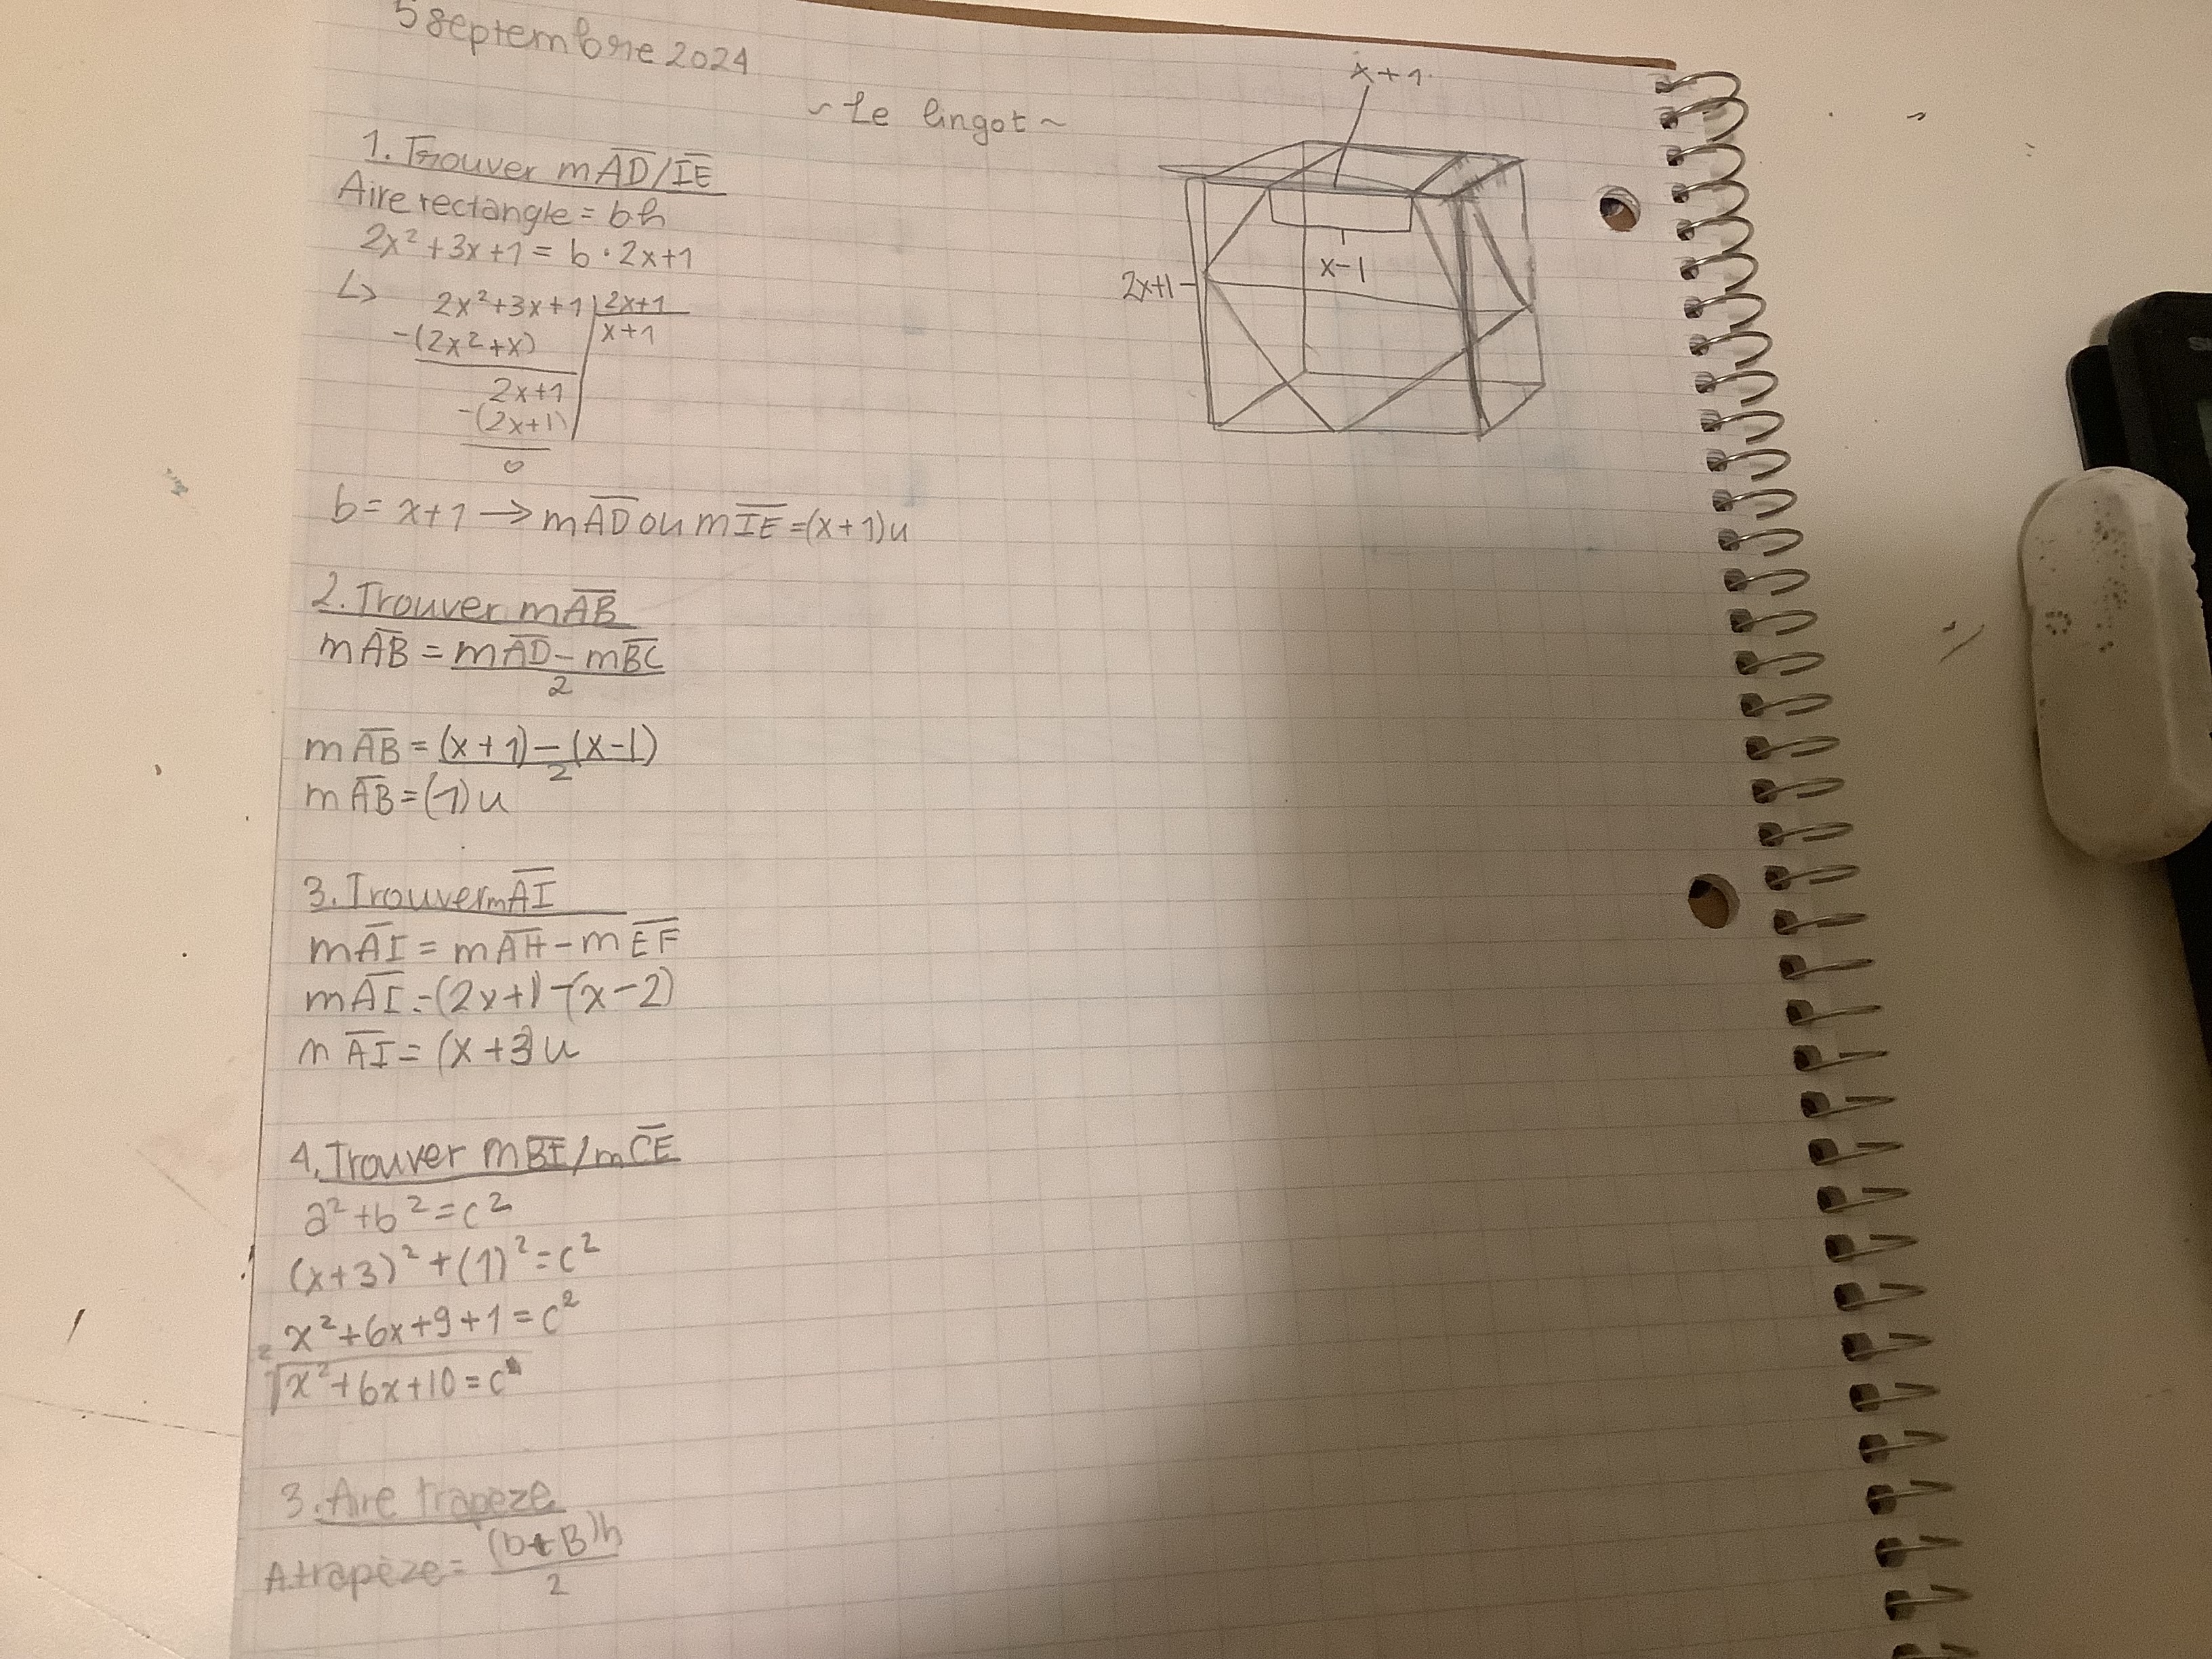 5 septembre 2024
~ Le lingot ~
1. Trouver mAD/IE
Aire rectangle = bh
2x² + 3x + 1 = b · 2x+1
↳ 2x² + 3x + 1 | 2x+1
-(2x² + x) x+1
2x+1
-(2x+1)
0
b = x+1 → mAD ou mIE = (x+1)u
2. Trouver mAB
mAB = mAD - mBC
2
mAB = (x+1) - (x-1)
2
mAB = (1)u
3. Trouver mAI
mAI = mAH - mEF
mAI = (2x+1) - (x-2)
mAI = (x+3)u
4. Trouver mBI/mCE
a² + b² = c²
(x+3)² + (1)² = c²
x² + 6x + 9 + 1 = c²
²√x² + 6x + 10 = c
3. Aire trapeze
Atrapèze = (b+B)h
2
x+1
2x+1
x-1